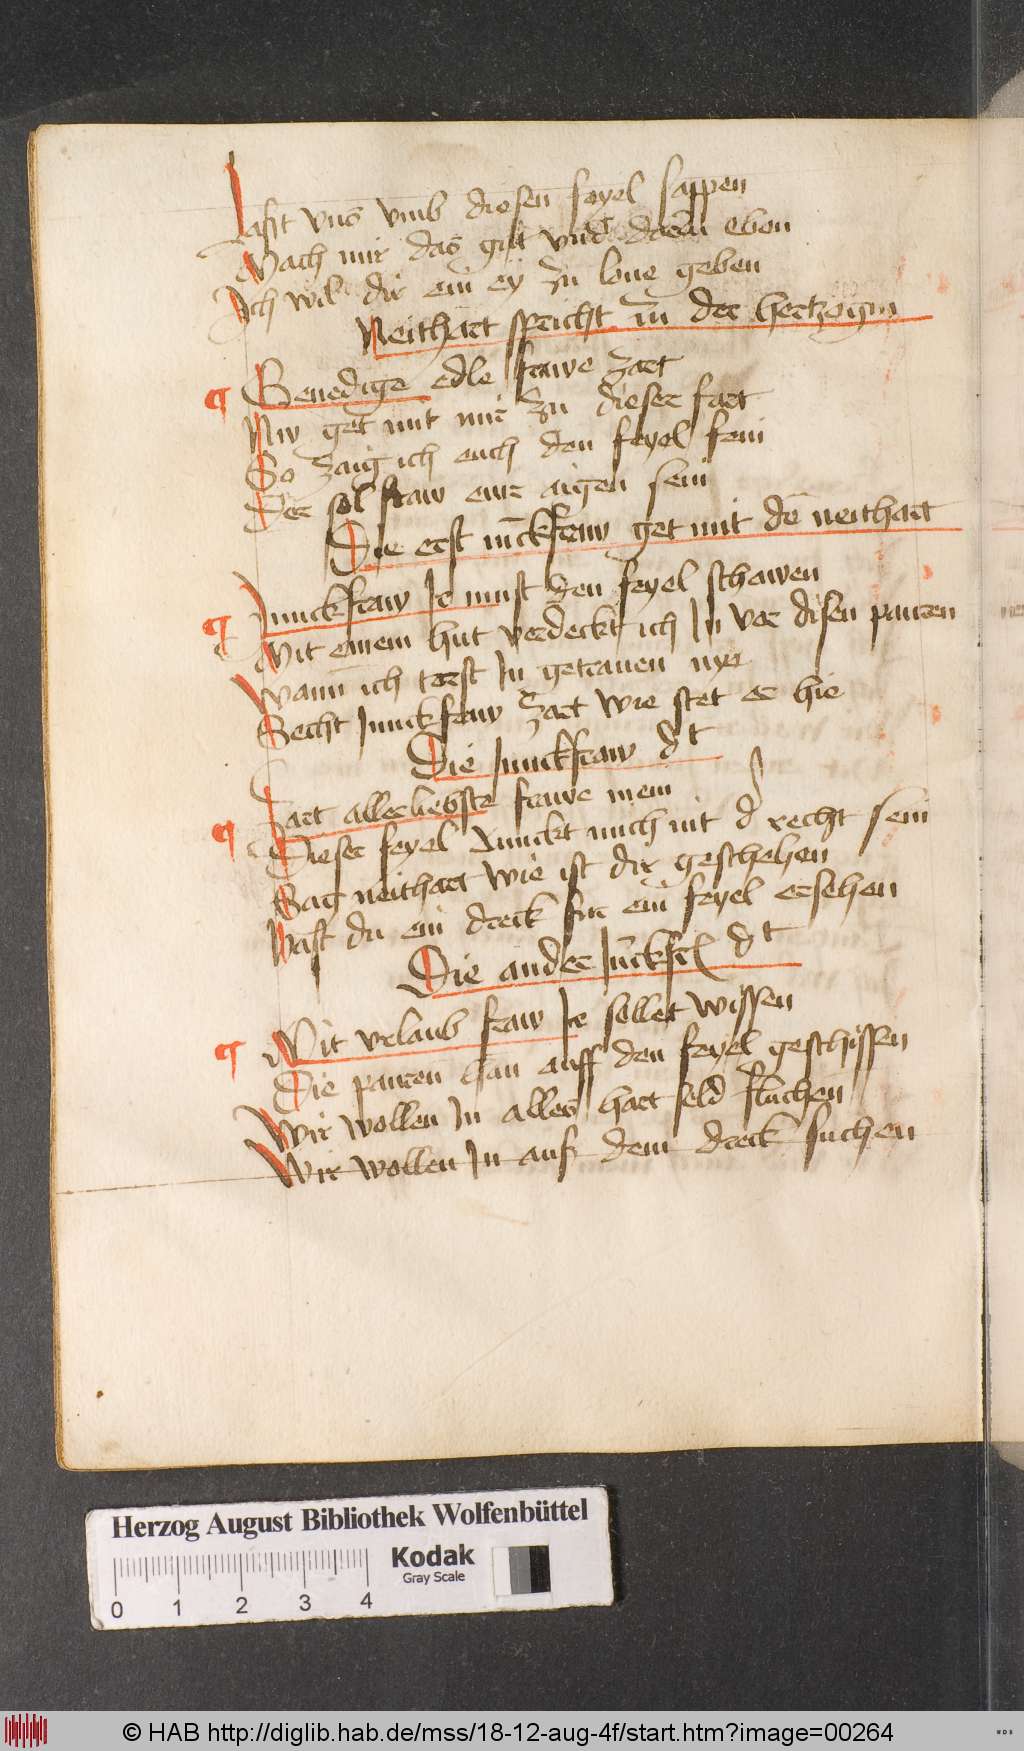 Last vns vmb diesen feyel sappen
Mach mir das gut vnd daben eben
Ich wil dir ein ey zu lone geben
Neithart spricht zu der hertzogin
¶ Genedige edle frawe zart
Nw get mit mir zu dieser fart
So zaig ich euch den feyel fein
Der sol fraw eur aigen sein
Die erst iūckfraw get mit dē neithart
¶ Junckfraw Ir must den feyel schawen
Mit einem hut verdeckt ich In vor disen pauren
Wann ich terst In getrauen nye
Secht Junckfraw zart wie stet er hie
Die Junckfraw dt
¶ Zart allerliebste frawe mein
Dieser feyel dunckt mich nit d recht sein
Sag neithart wie ist dir geschehen
Hast du ein dreck fur ein feyel ersehen
Die ander Jūckfr dt
¶ Mit vrlaub fraw Ir sellet wissen
Die pauren han auff den feyel geschissen
Wir wollen In alles hart seld fluchen
Wir wollen In auß dem dreck suchen
Herzog August Bibliothek Wolfenbüttel
Kodak
Gray Scale
0 1 2 3 4
© HAB http://diglib.hab.de/mss/18-12-aug-4f/start.htm?image=00264